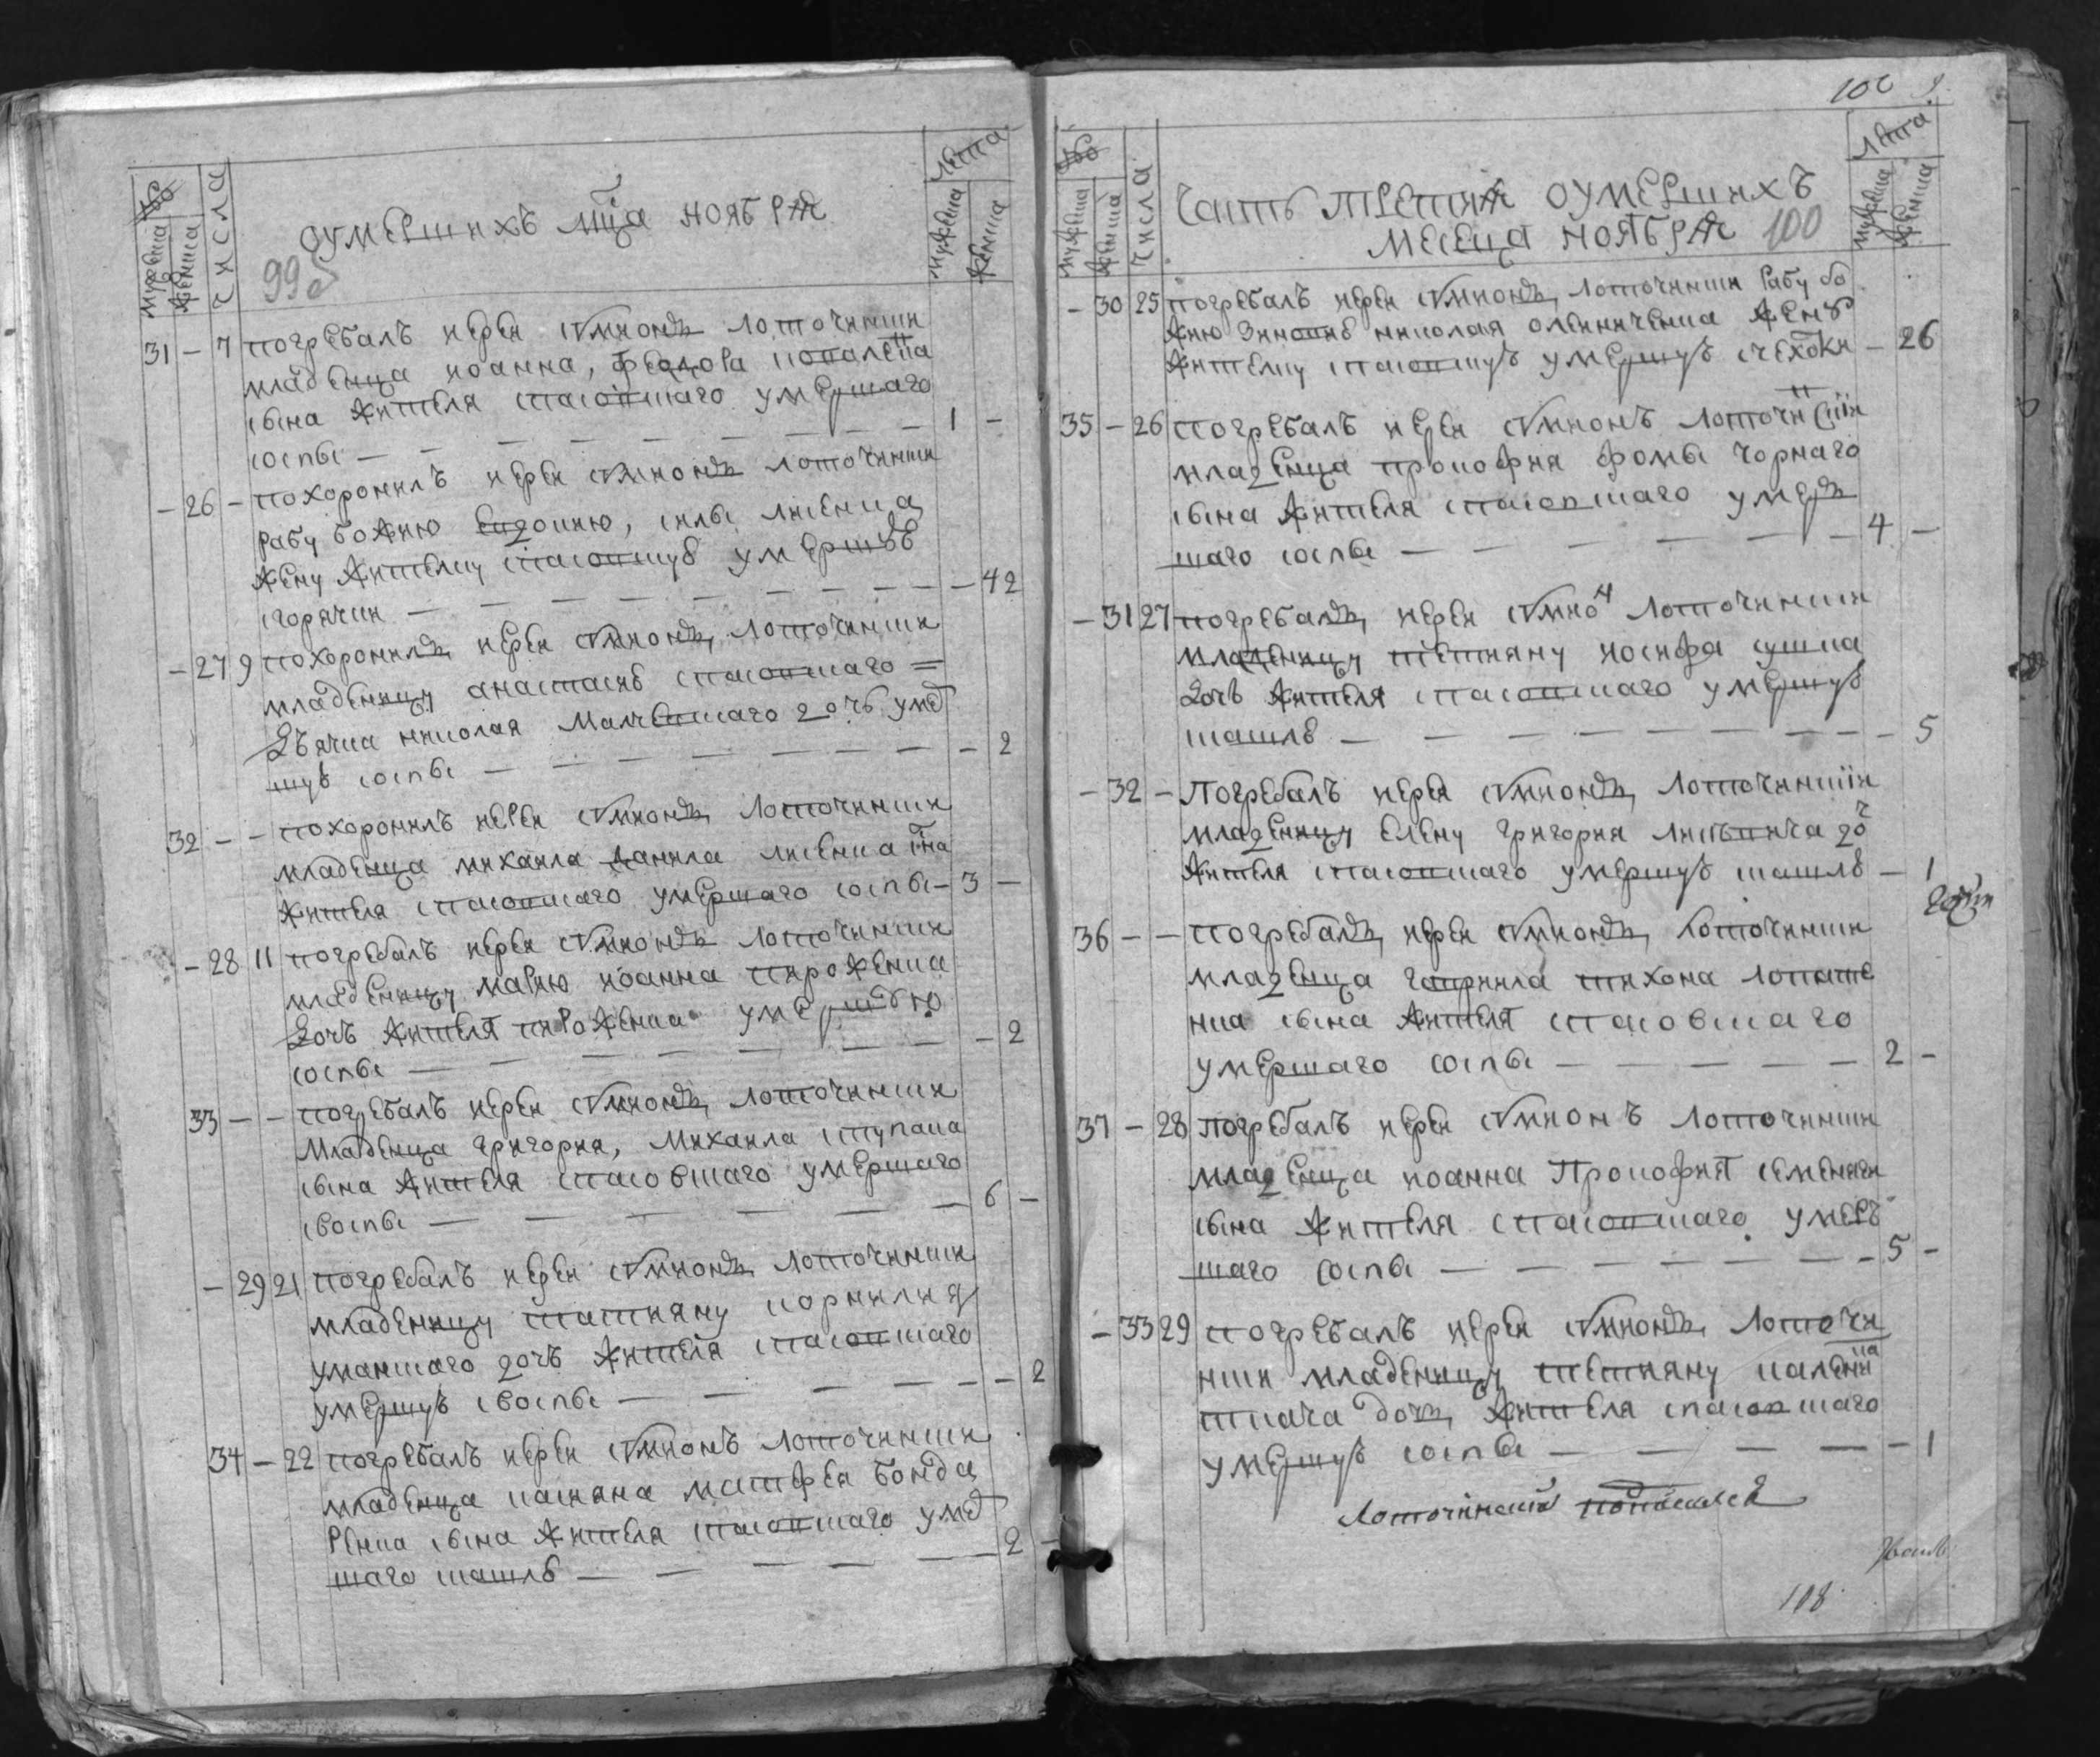 № числа лѣта
мужеска женска мужеска женска
оумершихъ мца ноября
99об
31 – 7 погребалъ иерей симионъ лоточински
младенца иоанна, феодора коваленка
сына жителя спасовшаго умершаго
соспы – 1 –
– 26 – похоронилъ иерей симионъ лоточински
рабу божию евдокию, силы лисенка
жену жителку спасовшую умершую
сгорячки – – 42
– 27 9 похоронилъ иерей симионъ лоточински
младеницу анастасию спасовшаго =
дъячка николая малчевшаго дочь умер
шую соспы – – 2
32 – – похоронилъ иерей симионъ лоточински
младенца михаила данила лисенка сна
жителя спасовшаго умершаго соспы – 3 –
– 28 11 погребалъ иерей симионъ лоточински
младеницу марию иоанна пироженка
дочь жителя пироженка умершую
соспы – – 2
33 – – погребалъ иерей симионъ лоточински
младенца григория, михаила ступака
сына жителя спасовшаго умершаго
своспы – 6 –
– 29 21 погребалъ иерей симионъ лоточински
младеницу татияну корнилия
уманшаго дочь жителя спасовшаго
умершую своспы – – 2
34 – 22 погребалъ иерей симионъ лоточински
младенца касияна матфея бонда
ренка сына жителя спасовшаго умер
шаго кашлю – 2 –
100
№ числа лѣта
мужеска женска мужеска женска
Часть третия оумершихъ
месеца ноября 100
– 30 25 погребалъ иерей симионъ лоточински рабу бо
жию зиновию николая олейниченка жену
жителку спасовшую умершую счехоки – 26
35 – 26 погребалъ иерей симионъ лоточинскій
младенца прокофия фомы чорнаго
сына жителя спасовшаго умер
шаго соспы – 4 –
– 31 27 погребалъ иерей симион лоточински
младеницу тетияну иосифа сушка
дочь жителя спасовшаго умершую
кашлю – – 5
– 32 – Погребалъ иерей симионъ лоточинскій
младеницу елену григория лисовика доч
жителя спасовшаго умершую кашлю – 1
36 – – погребалъ иерей симионъ лоточински
младенца гаврила тихона лопате
нка сына жителя спасовшаго
умершаго соспы – 2 –
37 – 28 погребалъ иерей симионъ лоточински
младенца иоанна Прокофия семеняки
сына жителя спасовшаго умер
шаго соспы – 5 –
– 33 29 погребалъ иерей симионъ лоточи
нски младеницу тетияну каленика
ткача дочь жителя спасовшаго
умершую соспы – – 1
Лоточинский подписался
108